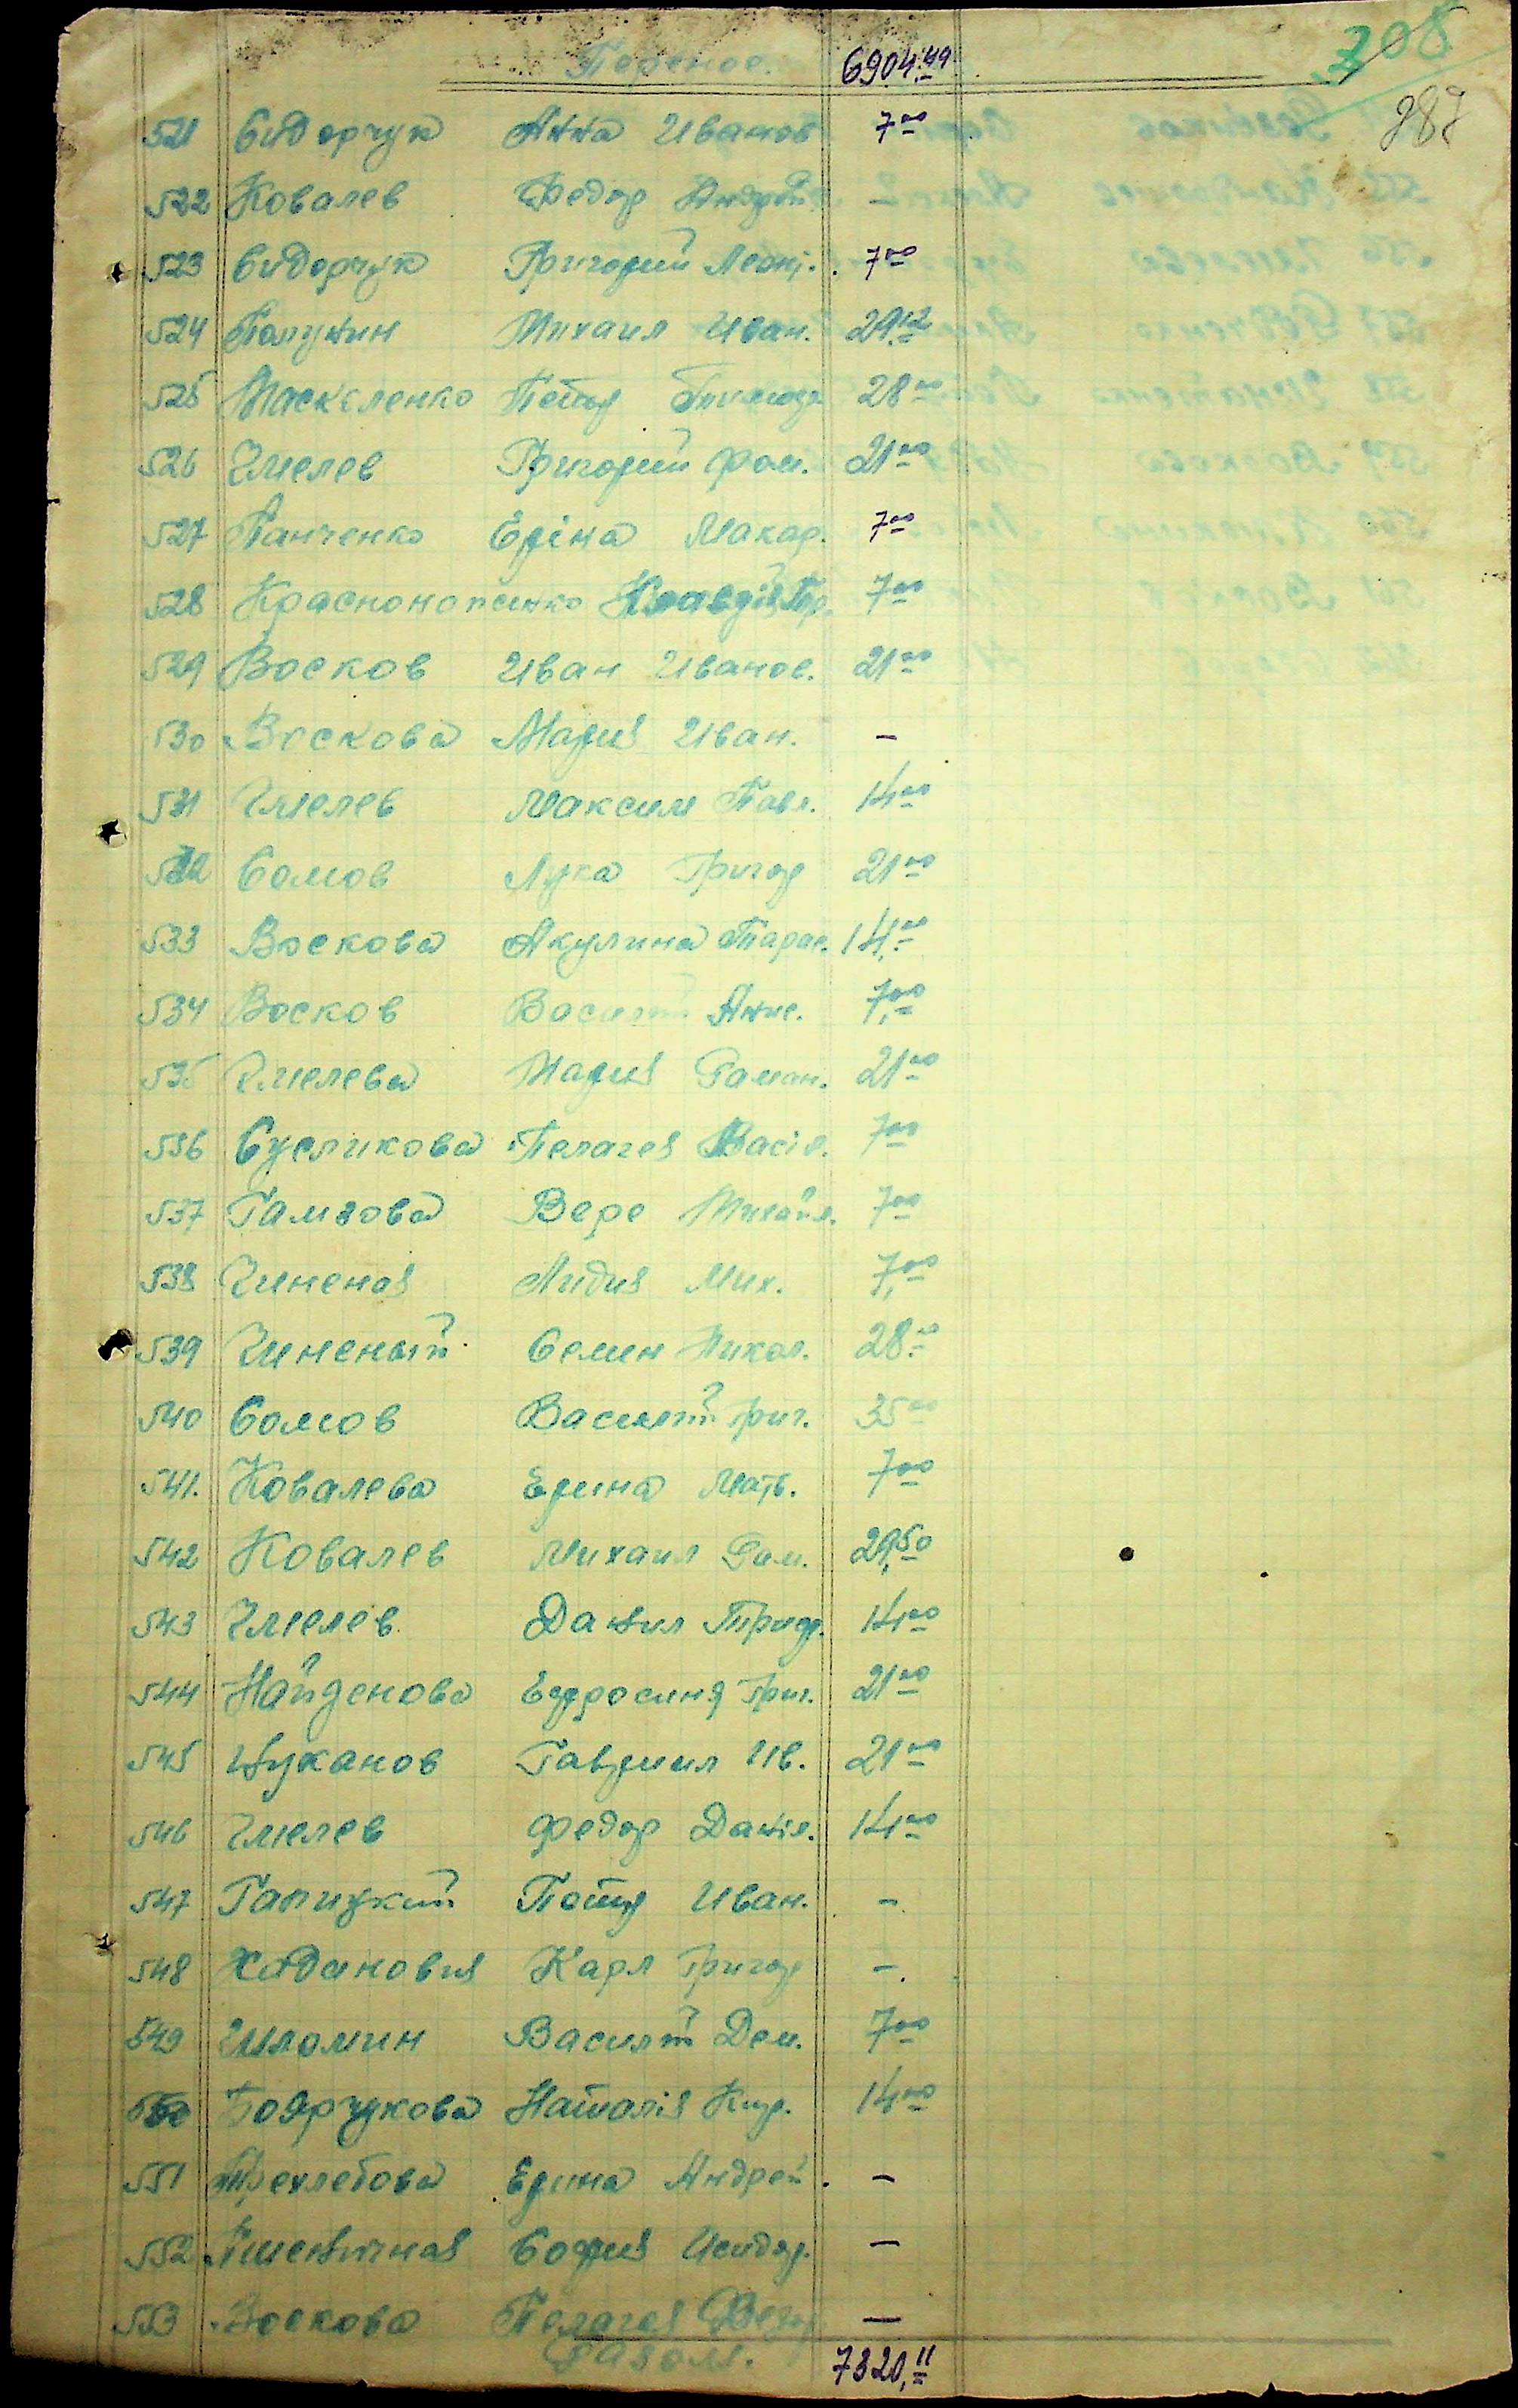 308
Перенос. 6904.49
287
521 Сидорчук Анна Иванов 7.00
522 Ковалев Федор Андрей. -
523 Сидорчук Григорий Леонт. 7.00
524 Полунин Михаил Иван. 29.12
525 Маскеленко Петр 28.00
526 Гмелев Григорий Фом. 21.00
527 Панченко Еріна Макар. 7.00
528 Краснонопенко Клавдія Гр. 7.00
529 Восков Иван Иванов. 21.00
530 Воскова Мария Иван. -
531 Гмелев Максим Павл. 14.00
532 Сомов Лука Григор 21.00
533 Воскова Акулина Тарас. 14.00
534 Восков Василий Анис. 7.00
535 Гмелева Мария Роман. 21.00
536 Сусликова Пелагея Васіл. 7.00
537 Гамзова Вере Михайл. 7.00
538 Чиненая Лидия Мих. 7.00
539 Чиненый Семен Никол. 28.00
540 Сомов Василий Григ. 35.00
541. Ковалева Ерина Матв. 7.00
542 Ковалев Михаил Ром. 29,50
543 Гмелев Данил 14.00
544 Найденова Ефросиня Григ. 21.00
545 Цуканов Гавриил Ив. 21.00
546 Гмелев Федор Даніл. 14.00
547 Галицкий Петр Иван. -
548 Карл Григор -
549 Василий Дем. 7.00
550 Боярчукова Наталія Кир. 14.00
551 Трехлебова Ерина Андрей. -
552 Пшеничная София Исидор. -
553 Воскова Пелагея Федор -
Разом. 7320,11